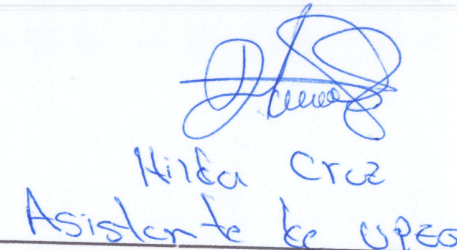 Hilda Cruz
Asistente de UPEG